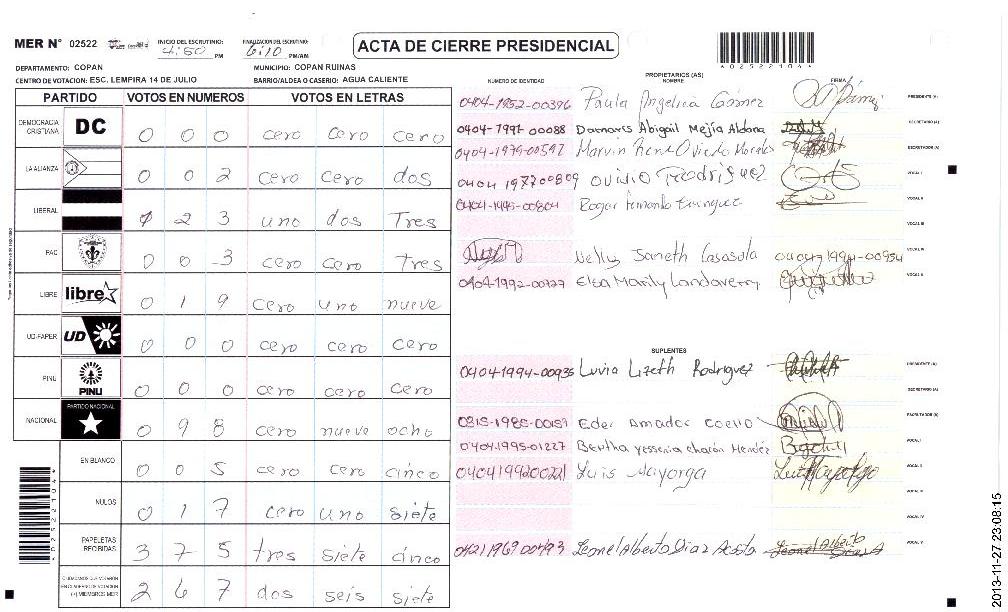 MER N° 02522 INICIO DEL ESCRUTINIO: 4:50 PM FINALIZACION DEL ESCRUTINIO: 6:10 PM/AM
ACTA DE CIERRE PRESIDENCIAL
4025221044
DEPARTAMENTO: COPAN MUNICIPIO: COPAN RUINAS
CENTRO DE VOTACION: ESC. LEMPIRA 14 DE JULIO BARRIO/ALDEA O CASERIO: AGUA CALIENTE
PARTIDO VOTOS EN NUMEROS VOTOS EN LETRAS
DEMOCRACIA CRISTIANA DC 0 0 0 cero cero cero
LA ALIANZA 0 0 2 cero cero dos
LIBERAL 1 2 3 uno dos Tres
PAC 0 0 3 cero cero tres
LIBRE libre 0 1 9 cero uno nueve
UD-FAPER UD 0 0 0 cero cero cero
PINU PINU 0 0 0 cero cero cero
NACIONAL PARTIDO NACIONAL 0 9 8 cero nueve ocho
EN BLANCO 0 0 5 cero cero cinco
NULOS 0 1 7 cero uno siete
PAPELETAS RECIBIDAS 3 7 5 tres siete cinco
CIUDADANOS QUE VOTARON EN CUADERNO DE VOTACION (+) MIEMBROS MER 2 6 7 dos seis siete
4025221044
PROPIETARIOS (AS)
NUMERO DE IDENTIDAD NOMBRE FIRMA
0404-1952-00396 Paula Angelica Gómez PRESIDENTE (A)
0404-1991-00088 Damaris Abigail Mejía Aldana SECRETARIO (A)
0404-1979-00597 Marvin Rene Oviedo Morales ESCRUTADOR (A)
0404 197700809 Ovidio Rodriguez VOCAL I
0404-1995-00804 Roger Fernando Enriquez VOCAL II
VOCAL III
Nelly Janeth Casasola 04041994-00954 VOCAL IV
0404-1992-00727 Elsa Marily Landaverry VOCAL V
SUPLENTES
0404-1994-00935 Luvia Lizeth Rodriguez PRESIDENTE (A)
SECRETARIO (A)
0315-1985-00157 Eder Amador Coello ESCRUTADOR (A)
0404-1995-01227 Bertha yessenia chacón Mendez VOCAL I
0404199200221 Luis Mayorga Luis Mayorga VOCAL II
VOCAL III
VOCAL IV
0421196900493 Leonel Alberto Diaz Acosta VOCAL V
2013-11-27 23:08:15